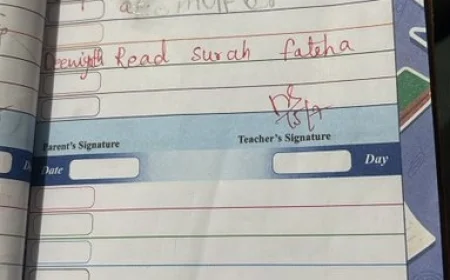 Deeniyath Read surah fateha
Parent's Signature
Teacher's Signature
Date
Day